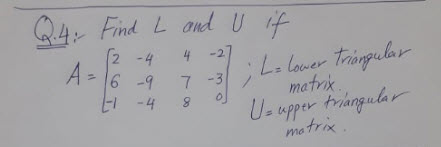 Q.4:- Find L and U if
A = [2 -4 4 -2
6 -9 7 -3
-1 -4 8 0] ; L = lower triangular matrix.
U = upper triangular matrix.